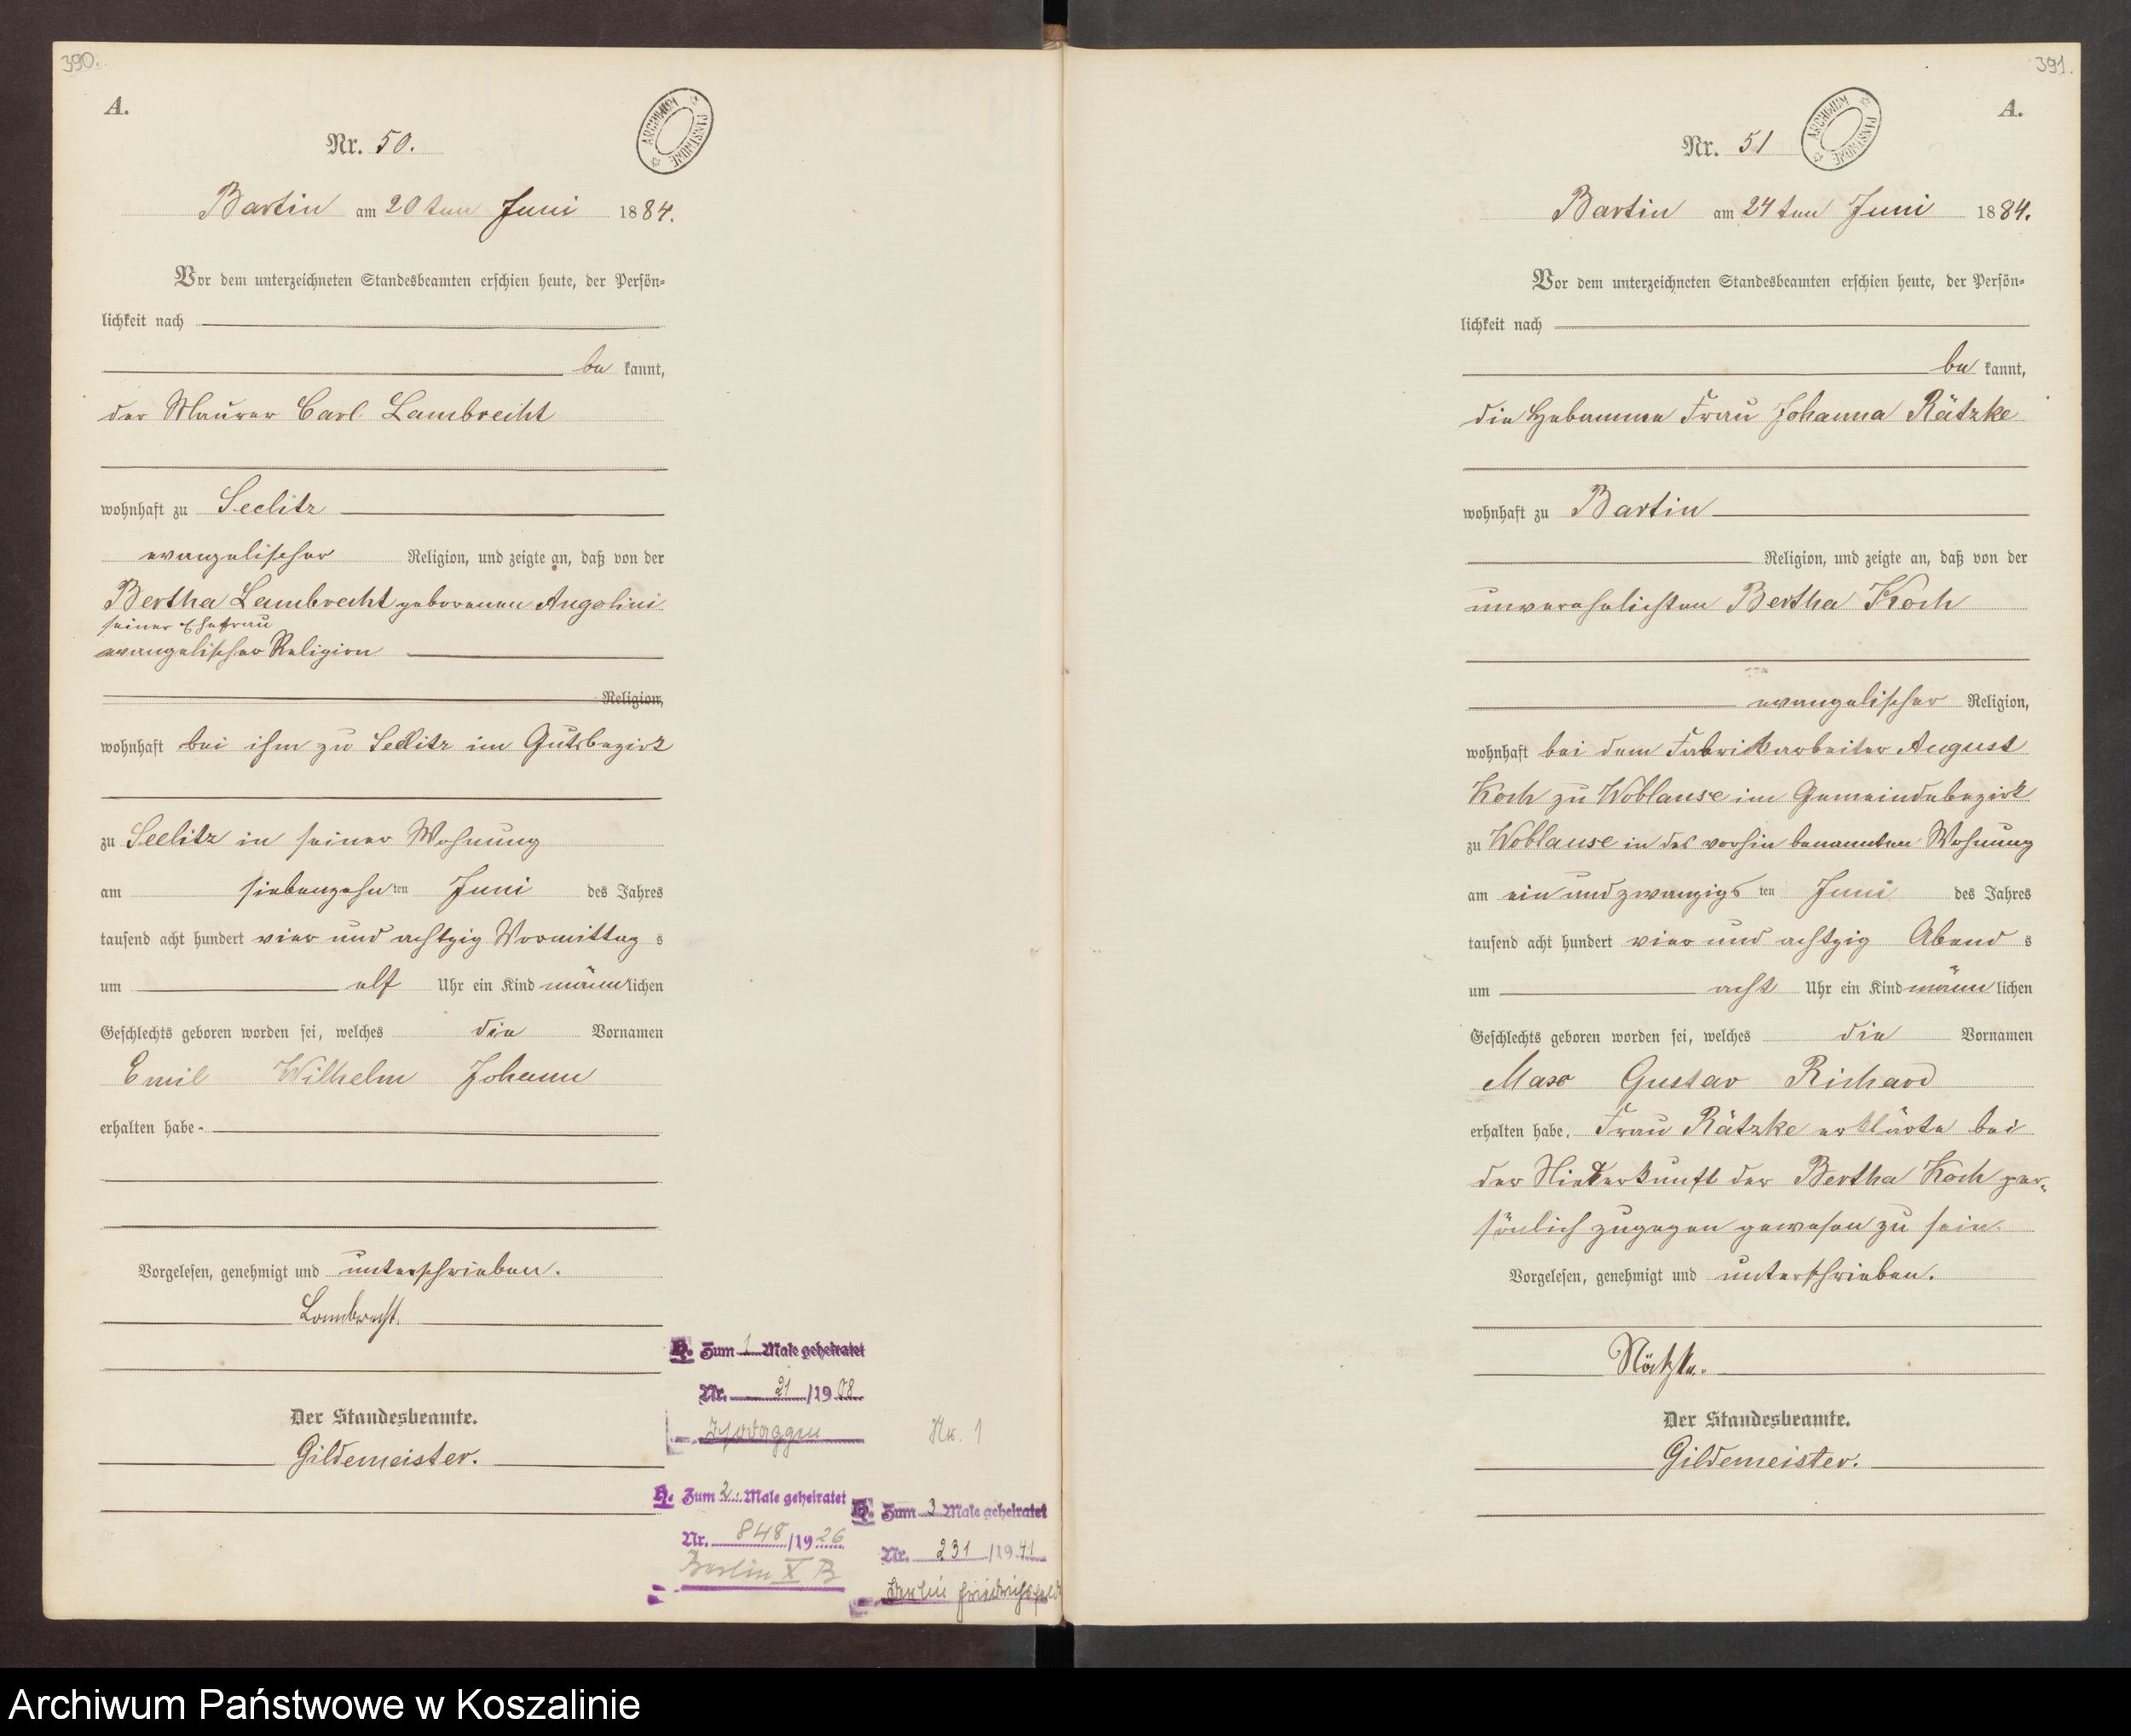 390.
A.
ARCHIWUM PAŃSTWOWE
Nr. 50.
Bartin am 20 ten Juni 1884.
Vor dem unterzeichneten Standesbeamten erschien heute, der Persön-
lichkeit nach
be kannt,
der Maurer Carl Lambrecht
wohnhaft zu Seelitz
evangelischer Religion, und zeigte an, daß von der
Bertha Lambrecht geborenen Angolini
seiner Ehefrau
evangelischer Religion
Religion,
wohnhaft bei ihm zu Seelitz im Gutsbezirk
zu Seelitz in seiner Wohnung
am siebenzehn ten Juni des Jahres
tausend acht hundert vier und achtzig Vormittag s
um elf Uhr ein Kind männ lichen
Geschlechts geboren worden sei, welches die Vornamen
Emil Wilhelm Johann
erhalten habe.
Vorgelesen, genehmigt und unterschrieben.
Lambrecht.
Der Standesbeamte.
Gildemeister.
H. Zum 1 Male geheiratet
Nr. 21 /19 08
Nk. 1
H. Zum 2. Male geheiratet
Nr. 848 /19 26
Berlin X B
H. Zum 3 Male geheiratet
Nr. 231 /19 41
Berlin Friedrichsfelde
391.
A.
ARCHIWUM PAŃSTWOWE
Nr. 51
Bartin am 24 ten Juni 1884.
Vor dem unterzeichneten Standesbeamten erschien heute, der Persön-
lichkeit nach
be kannt,
die Hebamme Frau Johanna Rätzke
wohnhaft zu Bartin
Religion, und zeigte an, daß von der
unverehelichten Bertha Koch
evangelischer Religion,
wohnhaft bei dem Fabrikarbeiter August
Koch zu Woblanse im Gemeindebezirk
zu Woblanse in der vorhin benannten Wohnung
am ein und zwanzigs ten Juni des Jahres
tausend acht hundert vier und achtzig Abend s
um acht Uhr ein Kind männ lichen
Geschlechts geboren worden sei, welches die Vornamen
Max Gustav Richard
erhalten habe. Frau Rätzke erklärte bei
der Niederkunft der Bertha Koch per-
sönlich zugegen gewesen zu sein.
Vorgelesen, genehmigt und unterschrieben.
Rätzke.
Der Standesbeamte.
Gildemeister.
Archiwum Państwowe w Koszalinie